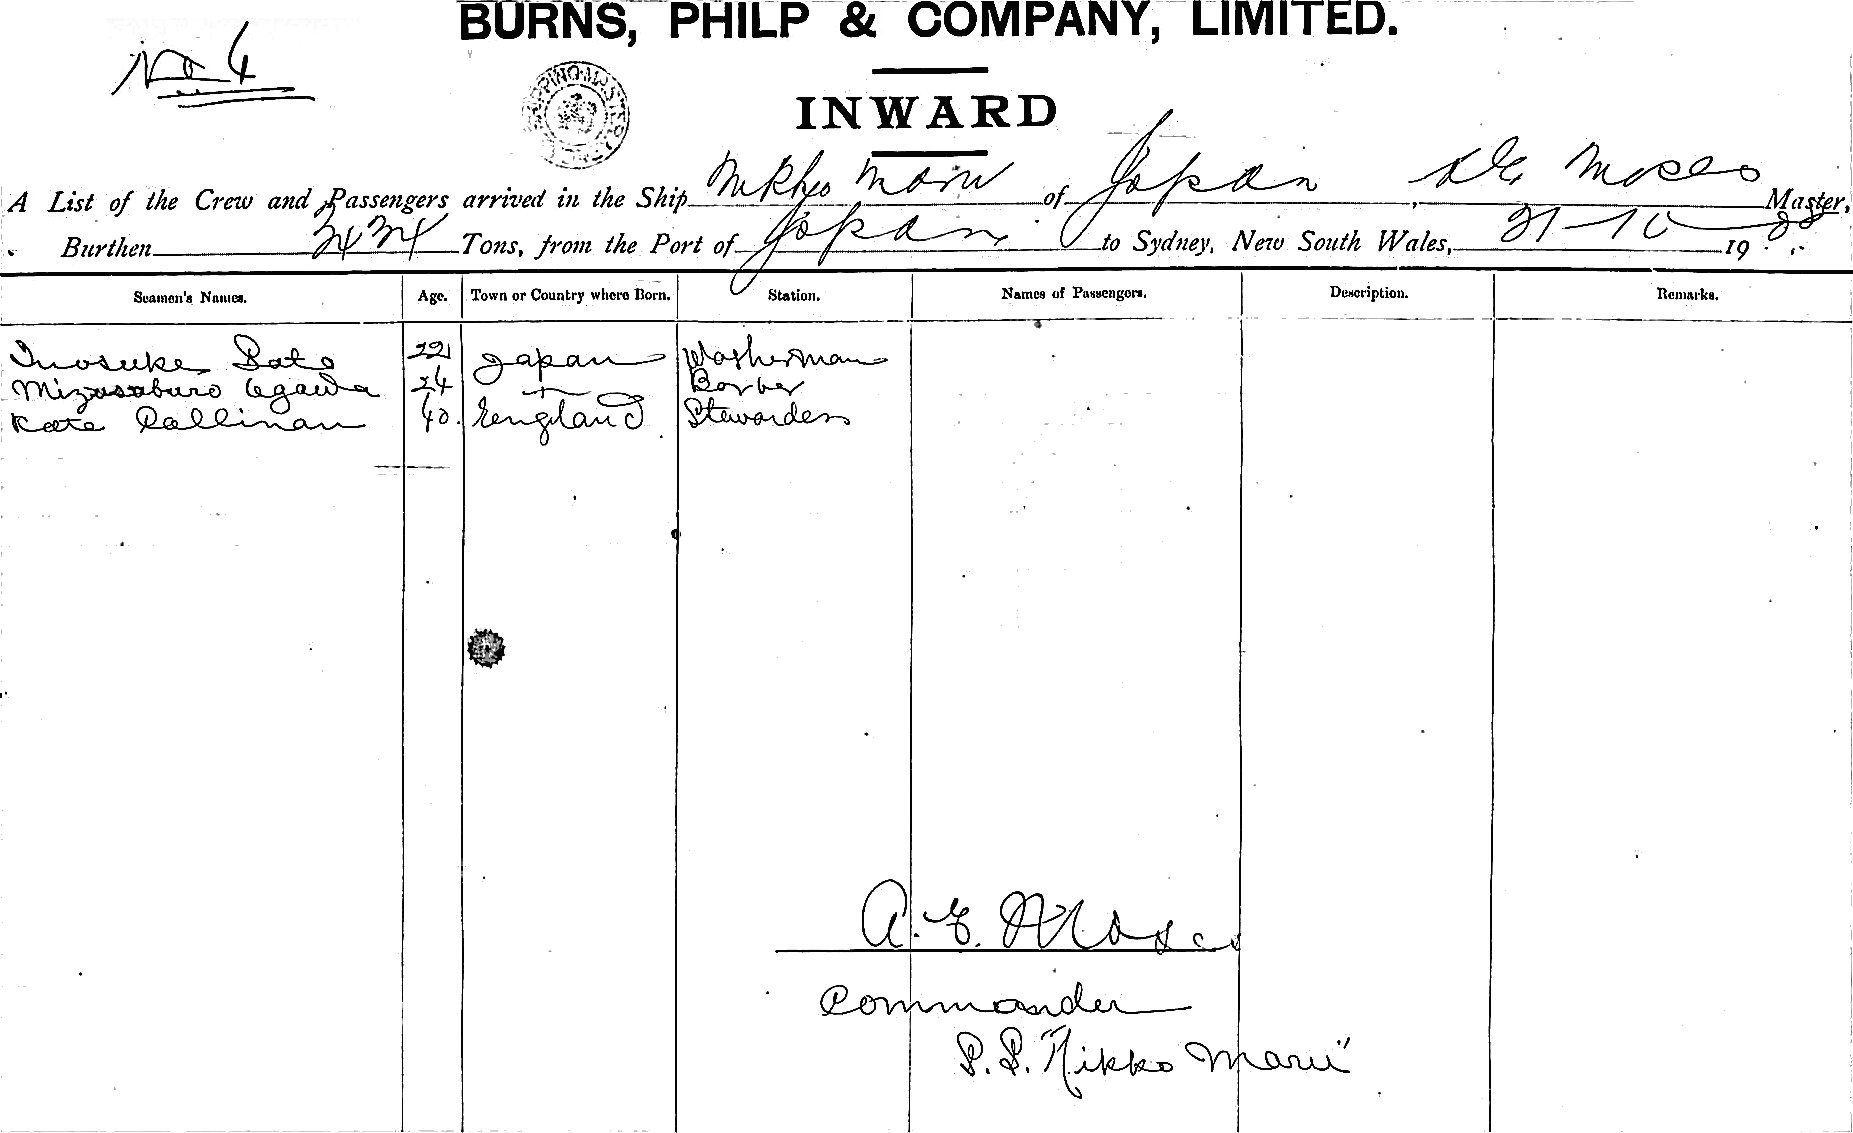 BURNS, PHILP & COMPANY, LIMITED.
No 4
INWARD
A List of the Crew and Passengers arrived in the Ship Nikko Maru of Japan, A.E. Moses Master,
Burthen Tons, from the Port of Japan to Sydney, New South Wales, 21-10 19
Seamen's Names. Age. Town or Country where Born. Station. Names of Passengers. Description. Remarks.
Inosuke Sato 22 Japan Washerman
Mizusaburo Ogawa 24 Barber
Kate Callinan 40. England Stewardess
A. E. Moses
Commander
S.S. "Nikko Maru"